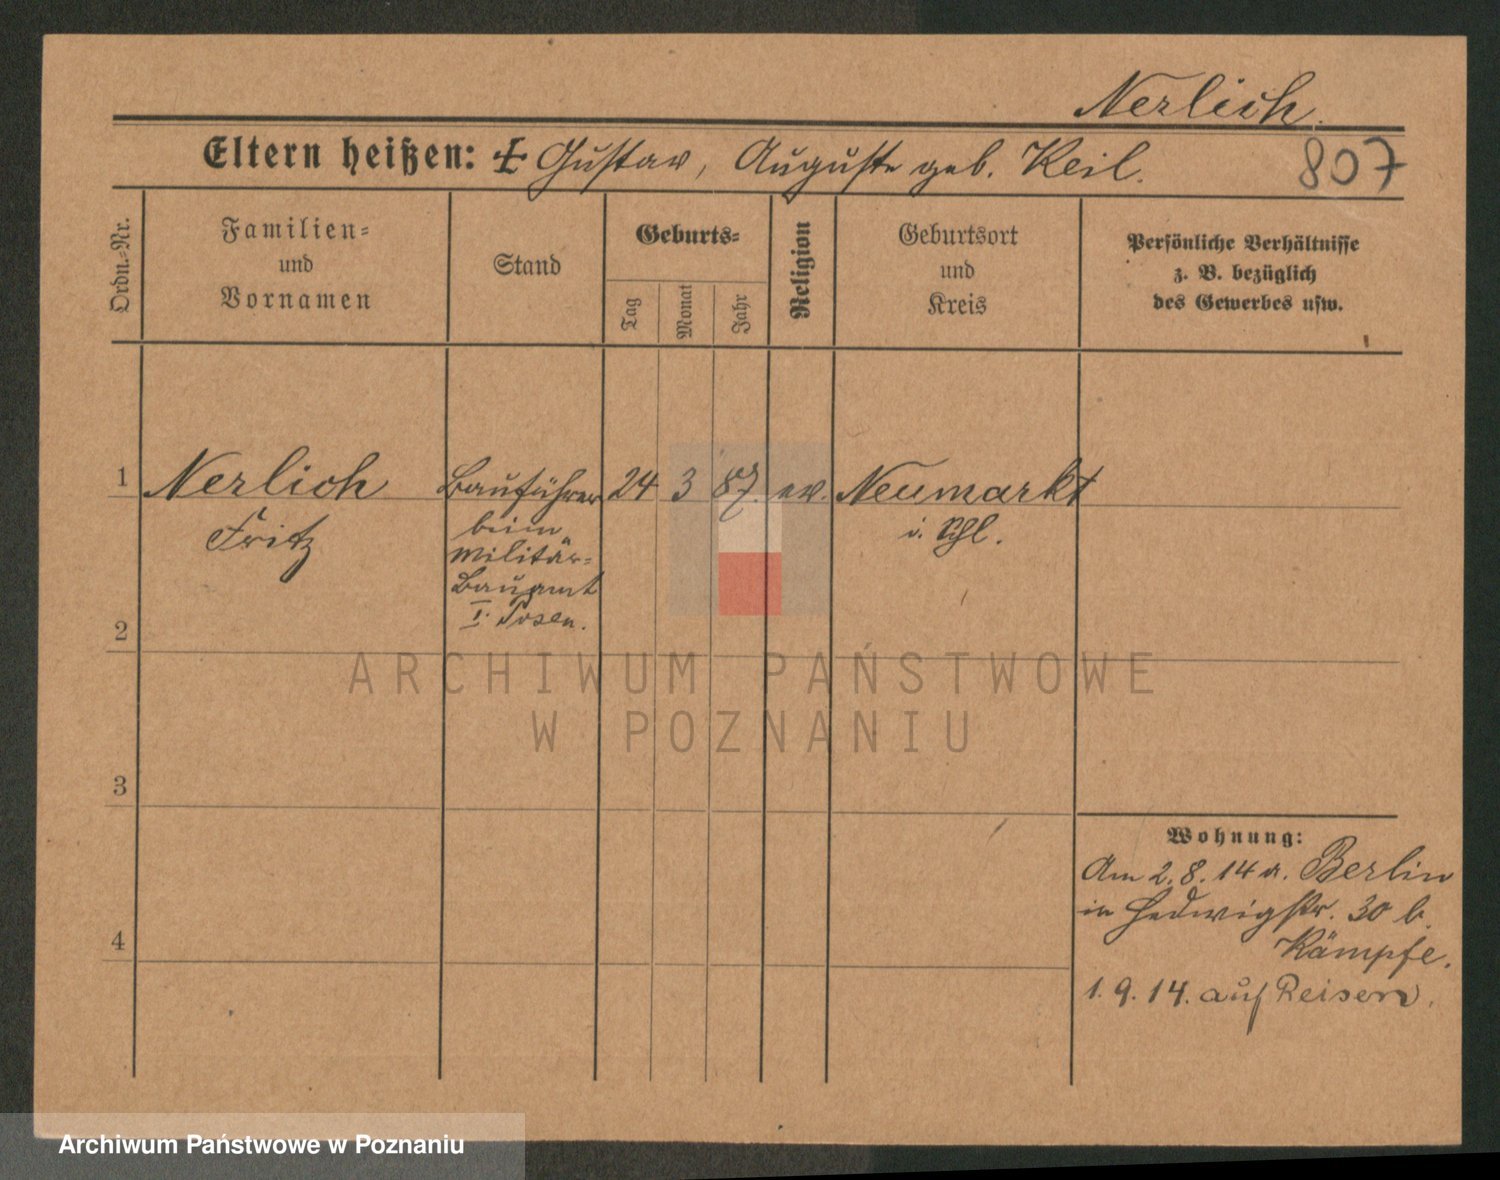 Nerlich.
Eltern heißen: + Gustav, Auguste geb. Keil.
807
Ordn.-Nr.
Familien-
und
Vornamen
Stand
Geburts-
Tag
Monat
Jahr
Religion
Geburtsort
und
Kreis
Persönliche Verhältnisse
z. B. bezüglich
des Gewerbes usw.
1 Nerlich Bauführer 24 3 87. ev. Neumarkt
Fritz beim i. Schl.
Militär-
Bauamt
I. Posen.
2
3
4
Wohnung:
Am 2.8.14 v. Berlin
in Hedwigstr. 30 b.
Kämpfe.
1.9.14. auf Reisen.
ARCHIWUM PAŃSTWOWE
W POZNANIU
Archiwum Państwowe w Poznaniu